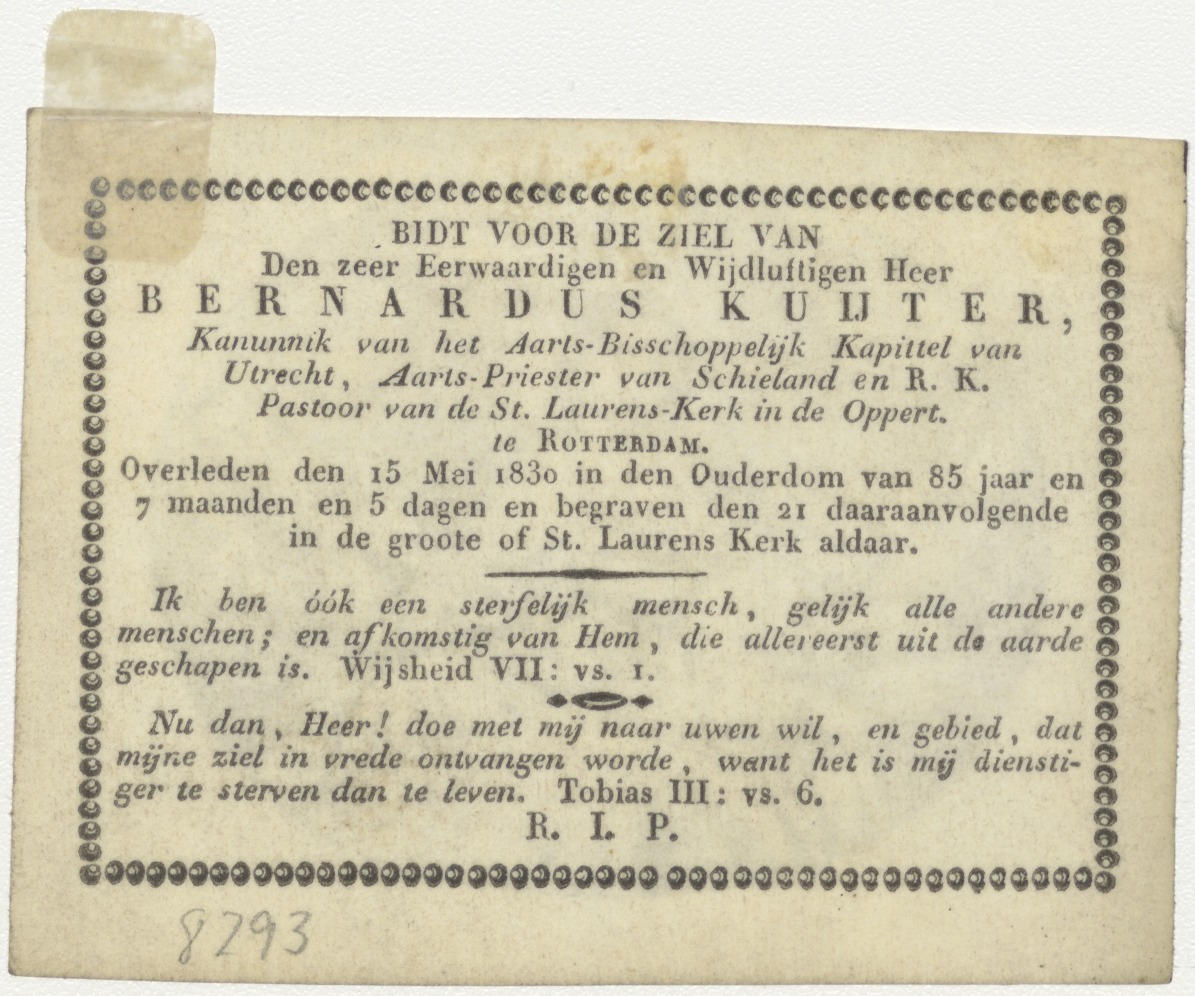 BIDT VOOR DE ZIEL VAN
Den zeer Eerwaardigen en Wijdluftigen Heer
BERNARDUS KUIJTER,
Kanunnik van het Aarts-Bisschoppelijk Kapittel van
Utrecht, Aarts-Priester van Schieland en R. K.
Pastoor van de St. Laurens-Kerk in de Oppert.
te ROTTERDAM.
Overleden den 15 Mei 1830 in den Ouderdom van 85 jaar en
7 maanden en 5 dagen en begraven den 21 daaraanvolgende
in de groote of St. Laurens Kerk aldaar.
Ik ben óók een sterfelijk mensch, gelijk alle andere
menschen; en afkomstig van Hem, die allereerst uit de aarde
geschapen is. Wijsheid VII: vs. 1.
Nu dan, Heer! doe met mij naar uwen wil, en gebied, dat
mijne ziel in vrede ontvangen worde, want het is mij diensti-
ger te sterven dan te leven. Tobias III: vs. 6.
R. I. P.
8293